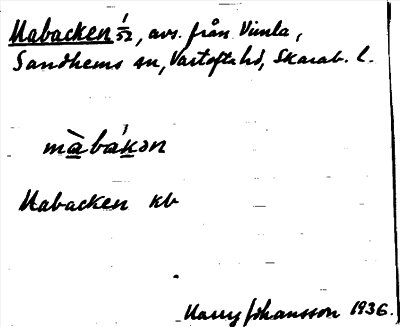 Mabacken 1/52, avs. från Vimla,
Sandhems sn, Vartofta hd, Skarab. l.
màbákən
Mabacken kb
Harry Johansson 1936.